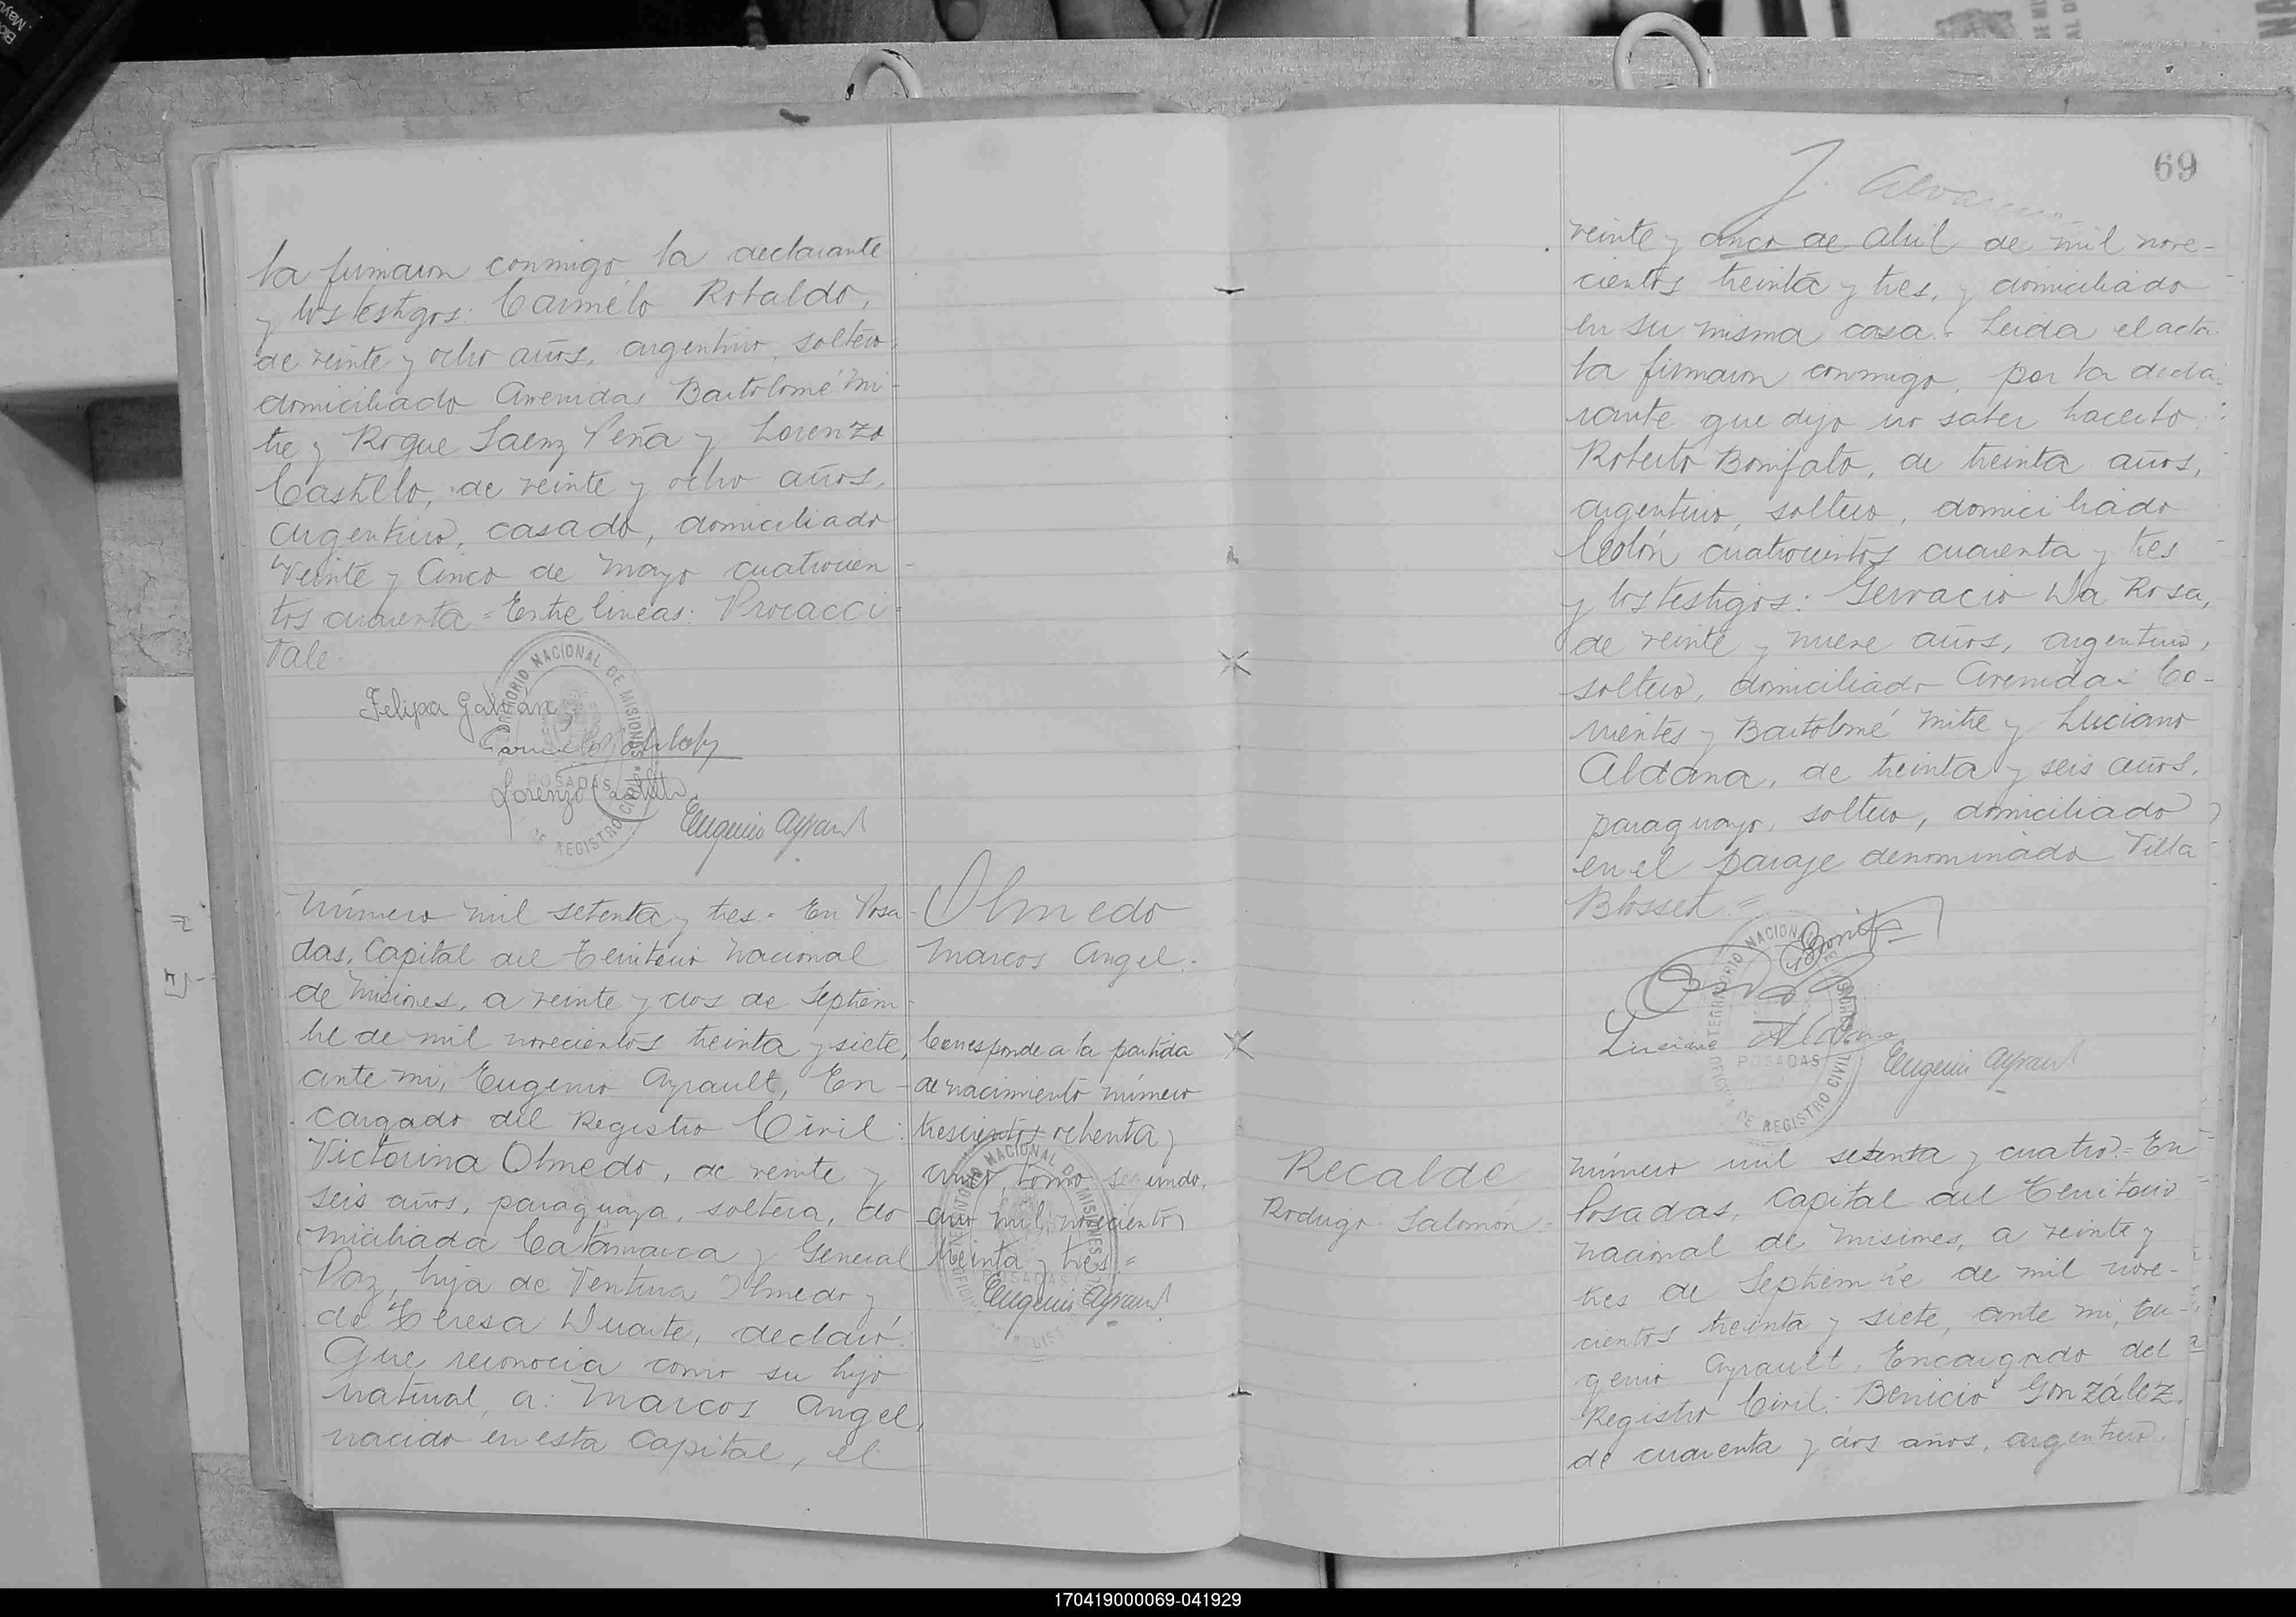 la firmaron conmigo la declarante
y los testigos: Carmelo Robaldo,
de veinte y ocho años, argentino, soltero,
domiciliado Avenidas Bartolomé Mi-
tre y Roque Saenz Peña y Lorenzo
Castillo, de veinte y ocho años,
argentino, casado, domiciliado
Veinte y Cinco de Mayo cuatrocien-
tos cuarenta = Entre lineas: Procacci =
Vale.
TERRITORIO NACIONAL DE MISIONES
POSADAS
DE REGISTRO CIVIL
Felipa Galván
Lorenzo Castillo
Eugenio Ayrault
Número mil setenta y tres.= En Posa-
das, Capital del Territorio Nacional
de Misiones, a veinte y dos de Septiem-
bre de mil novecientos treinta y siete,
ante mi, Eugenio Ayrault, En-
cargado del Registro Civil:
Victorina Olmedo, de veinte y
seis años, paraguaya, soltera, do
miciliada Catamarca y General
Paz, hija de Ventura Olmedo y
de Teresa Duarte, declaró:
Que reconocia como su hijo
natural, a: Marcos Angel,
nacido en esta Capital, el
Olmedo
Marcos Angel.-
Corresponde a la partida
de nacimiento número
trescientos ochenta y
cinco, tomo segundo,
año mil novecientos
treinta y tres.=
Eugenio Ayrault
69
J. Alvarenga
veinte y cinco de Abril de mil nove-
cientos treinta y tres, y domiciliado
en su misma casa.- Leida el acta
la firmaron conmigo, por la decla-
rante que dijo no saber hacerlo:
Roberto Bonifato, de treinta años,
argentino, soltero, domiciliado
Colón cuatrocientos cuarenta y tres
y los testigos: Gervacio Da Rosa,
de veinte y nueve años, argentino,
soltero, domiciliado Avenidas Co-
rrientes y Bartolomé Mitre y Luciano
Aldana, de treinta y seis años,
paraguayo, soltero, domiciliado
en el paraje denominado Villa
Blosset =
TERRITORIO NACIONAL DE MISIONES
POSADAS
OFICINA DE REGISTRO CIVIL
Luciano Aldana
Eugenio Ayrault
Recalde
Rodrigo Salomón =
Número mil setenta y cuatro.= En
Posadas, Capital del Territorio
Nacional de Misiones, a veinte y
tres de Septiembre de mil nove-
cientos treinta y siete, ante mi, Eu-
genio Ayrault, Encargado del
Registro Civil: Benicio González,
de cuarenta y dos años, argentino,
170419000069-041929